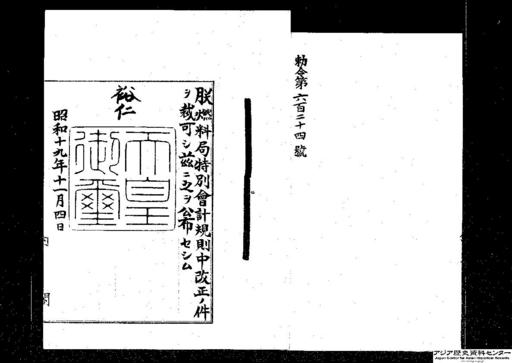 勅令第六百二十四號
朕燃料局特別會計規則中改正ノ件
ヲ裁可シ茲ニ之ヲ公布セシム
裕仁
天皇御璽
昭和十九年十一月四日
内閣
アジア歴史資料センター
Japan Center for Asian Historical Records